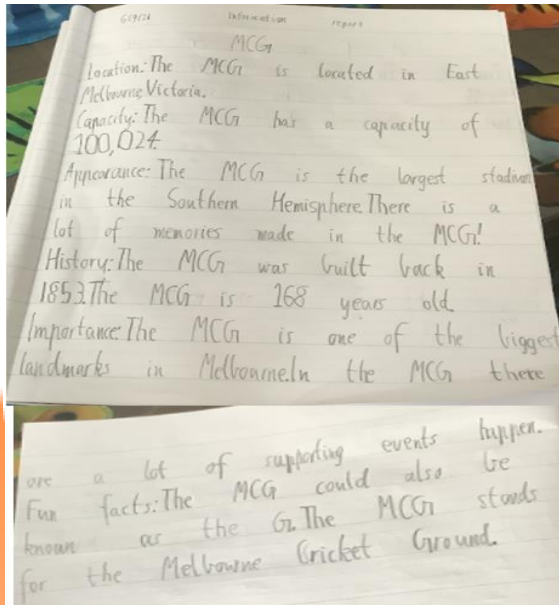 Information report
MCG
Location: The MCG is located in East
Melbourne Victoria.
Capacity: The MCG has a capacity of
100,024.
Appearance: The MCG is the largest stadium
in the Southern Hemisphere. There is a
lot of memories made in the MCG!
History: The MCG was built back in
1853. The MCG is 168 years old
Importance: The MCG is one of the biggest
landmarks in Melbourne. In the MCG there
are a lot of supporting events happen.
Fun facts: The MCG could also be
known as the G. The MCG stands
for the Melbourne Cricket Ground.